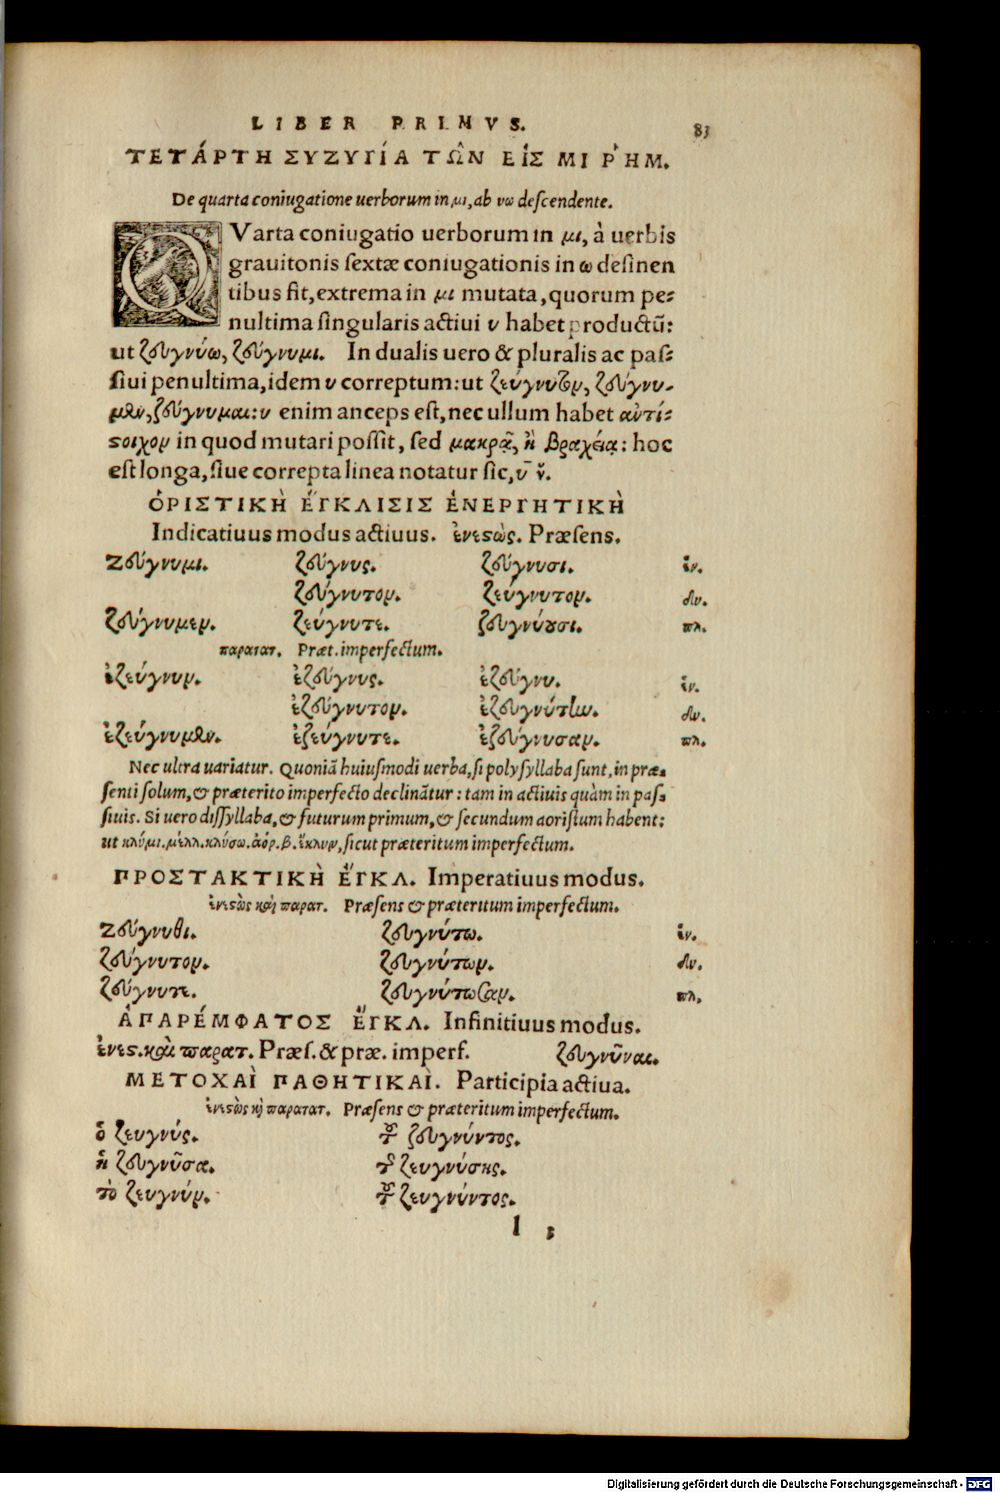 LIBER PRIMVS. 83
ΤΕΤΆΡΤΗ ΣΥΖΥΓΊΑ ΤΩ͂Ν ΕΙΣ ΜΙ ῬΗΜ.
De quarta coniugatione uerborum in μι, ab νω descendente.
QVarta coniugatio uerborum in μι, à uerbis
grauitonis sextæ coniugationis in ω desinen
tibus fit, extrema in μι mutata, quorum pe-
nultima singularis actiui υ habet productũ:
ut ζευγνύω, ζεύγνυμι. In dualis uero & pluralis ac pas-
siui penultima, idem υ correptum: ut ζεύγνυτον, ζεύγνυ-
μεν, ζεύγνυμαι: υ enim anceps est, nec ullum habet ἀντί-
στοιχον in quod mutari possit, sed μακρᾷ, ἢ βραχείᾳ: hoc
est longa, siue correpta linea notatur sic, ῡ ῠ.
ὉΡΙΣΤΙΚῊ ἜΓΚΛΙΣΙΣ ἘΝΕΡΓΗΤΙΚῊ
Indicatiuus modus actiuus. ἐνεστὼς. Præsens.
Ζεύγνυμι. ζεύγνυς. ζεύγνυσι. ἑν.
ζεύγνυτον. ζεύγνυτον. δυ.
ζεύγνυμεν. ζεύγνυτε. ζευγνύουσι. πλ.
παρατατ. Præt. imperfectum.
ἐζεύγνυν. ἐζεύγνυς. ἐζεύγνυ. ἑν.
ἐζεύγνυτον. ἐζευγνύτην. δυ.
ἐζεύγνυμεν. ἐζεύγνυτε. ἐζεύγνυσαν. πλ.
Nec ultra uariatur. Quoniã huiusmodi uerba, si polysyllaba sunt, in præ-
senti solum, & præterito imperfecto declinãtur: tam in actiuis quàm in pas-
siuis. Si uero dissyllaba, & futurum primum, & secundum aoristum habent:
ut κλύμι. μέλλ. κλύσω. ἀόρ. β. ἔκλυν, sicut præteritum imperfectum.
ΠΡΟΣΤΑΚΤΙΚῊ ἜΓΚΛ. Imperatiuus modus.
ἐνεστὼς καὶ παρατ. Præsens & præteritum imperfectum.
Ζεύγνυθι. ζευγνύτω. ἑν.
ζεύγνυτον. ζευγνύτων. δυ.
ζεύγνυτε. ζευγνύτωσαν. πλ.
ἈΠΑΡΈΜΦΑΤΟΣ ἜΓΚΛ. Infinitiuus modus.
ἐνεστ. καὶ παρατ. Præs. & præ. imperf. ζευγνῦναι.
ΜΕΤΟΧΑῚ ΠΑΘΗΤΙΚΑῚ. Participia actiua.
ἐνεστὼς κὶ παρατατ. Præsens & præteritum imperfectum.
ὁ ζευγνύς. τοῦ ζευγνύντος.
ἡ ζευγνῦσα. τῆς ζευγνύσης.
τὸ ζευγνύν. τοῦ ζευγνύντος.
l 3
Digitalisierung gefördert durch die Deutsche Forschungsgemeinschaft - DFG